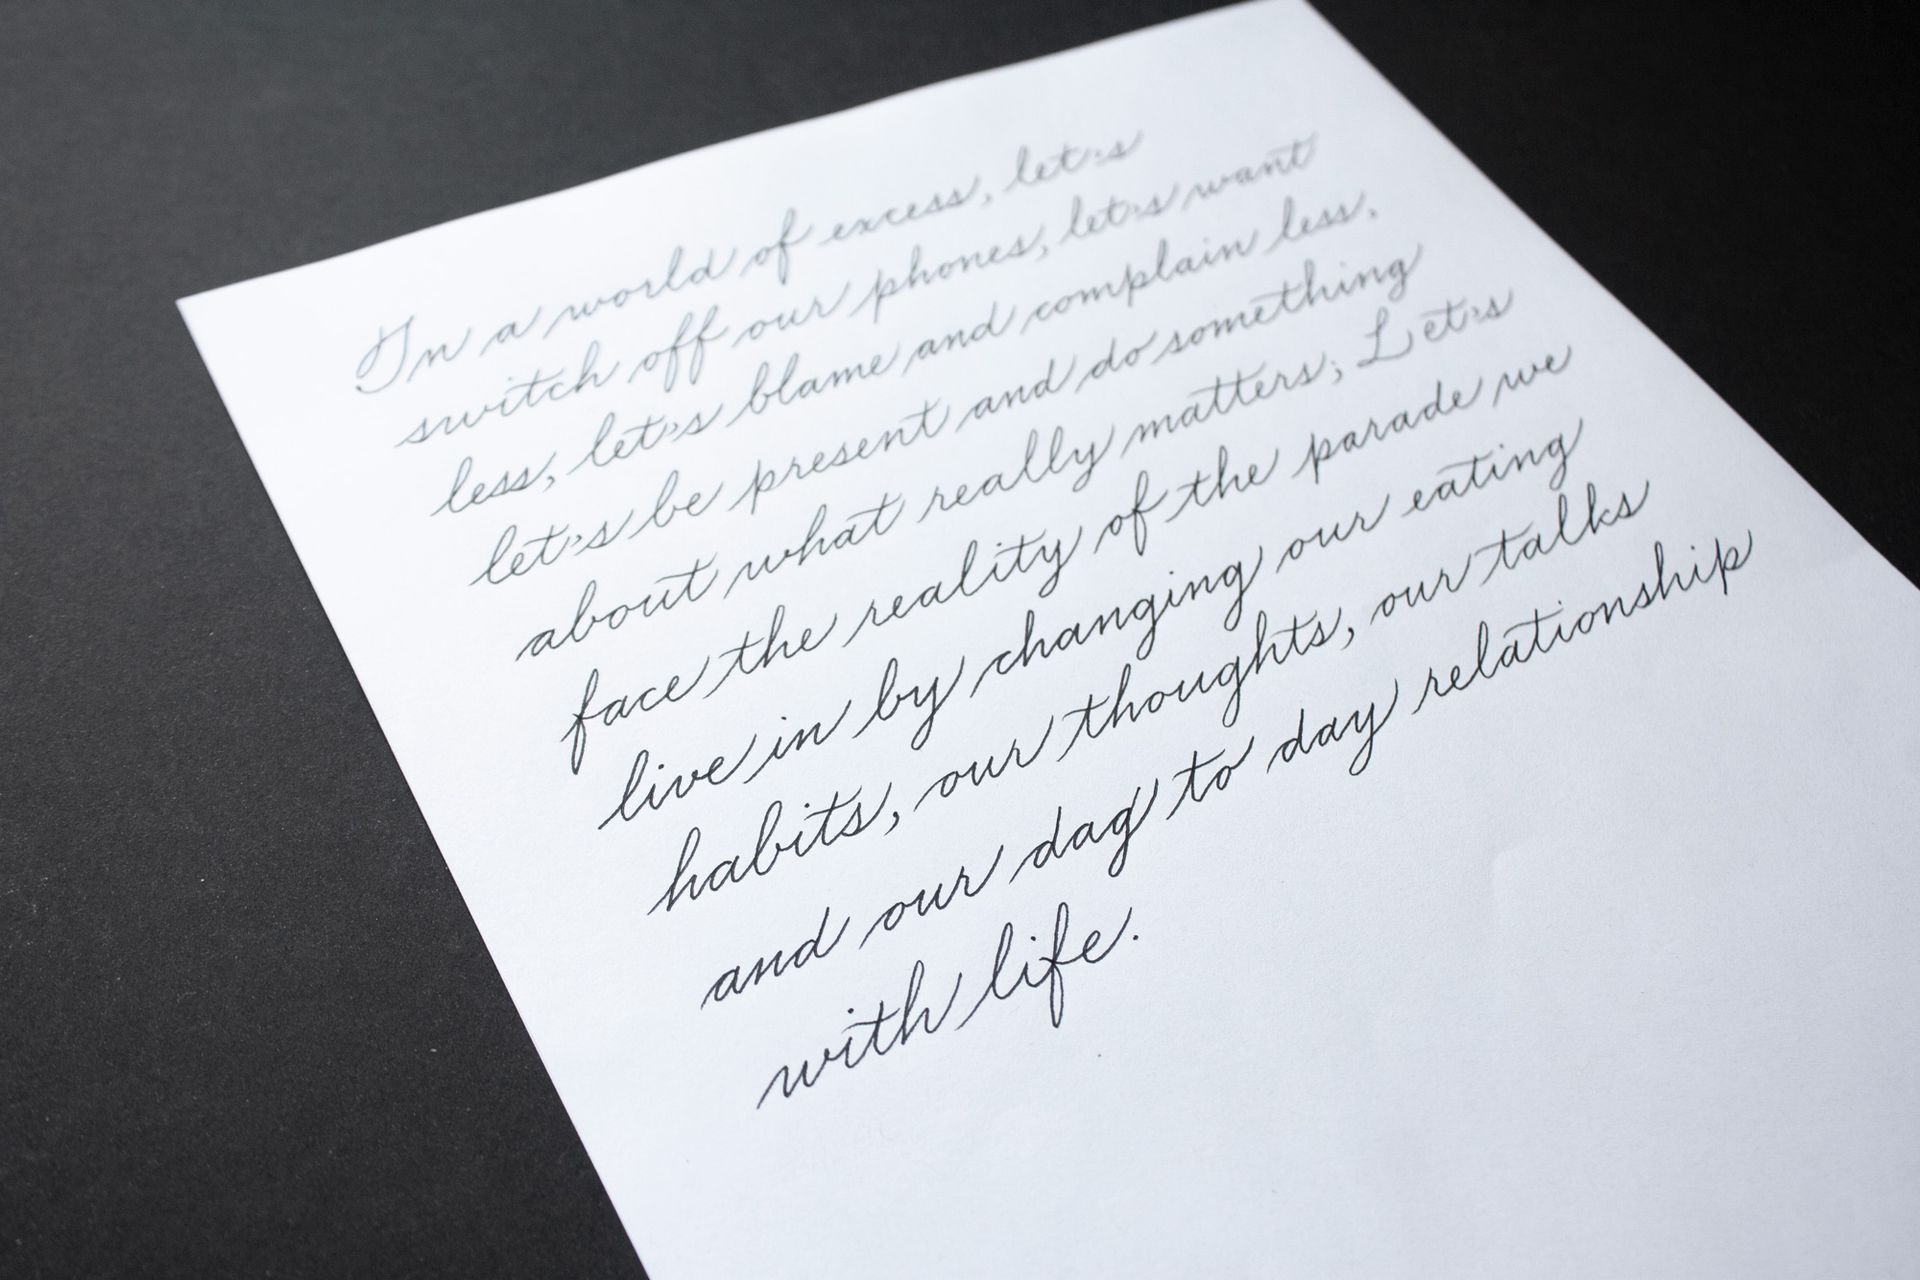 In a world of excess, let's
switch off our phones, let's want
less, let's blame and complain less,
let's be present and do something
about what really matters; Let's
face the reality of the parade we
live in by changing our eating
habits, our thoughts, our talks
and our day to day relationship
with life.